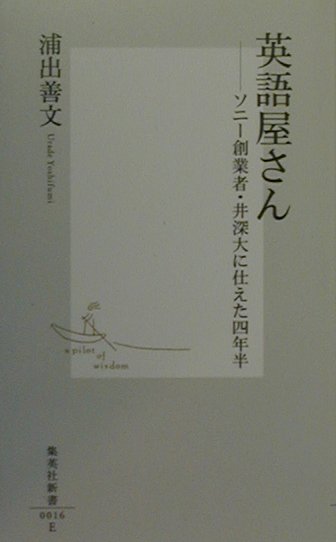 英語屋さん
——ソニー創業者・井深大に仕えた四年半
浦出善文
Urade Yoshifumi
a pilot
of
wisdom
集英社新書
0016
E